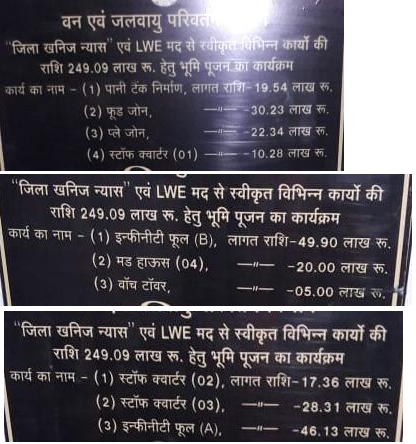 वन एवं जलवायु परिवर्तन
"जिला खनिज न्यास" एवं LWE मद से स्वीकृत विभिन्न कार्यो की
राशि 249.09 लाख रू. हेतु भूमि पूजन का कार्यक्रम
कार्य का नाम - (1) पानी टेंक निर्माण, लागत राशि-19.54 लाख रू.
(2) फूड जोन, —"— -30.23 लाख रू.
(3) प्ले जोन, —"— -22.34 लाख रू.
(4) स्टॉफ क्वार्टर (01) —"— -10.28 लाख रू.
"जिला खनिज न्यास" एवं LWE मद से स्वीकृत विभिन्न कार्यो की
राशि 249.09 लाख रू. हेतु भूमि पूजन का कार्यक्रम
कार्य का नाम - (1) इन्फीनीटी फूल (B), लागत राशि-49.90 लाख रू.
(2) मड हाऊस (04), —"— -20.00 लाख रू.
(3) वॉच टॉवर, —"— -05.00 लाख रू.
"जिला खनिज न्यास" एवं LWE मद से स्वीकृत विभिन्न कार्यो की
राशि 249.09 लाख रू. हेतु भूमि पूजन का कार्यक्रम
कार्य का नाम - (1) स्टॉफ क्वार्टर (02), लागत राशि-17.36 लाख रू.
(2) स्टॉफ क्वार्टर (03), —"— -28.31 लाख रू.
(3) इन्फीनीटी फूल (A), —"— -46.13 लाख रू.